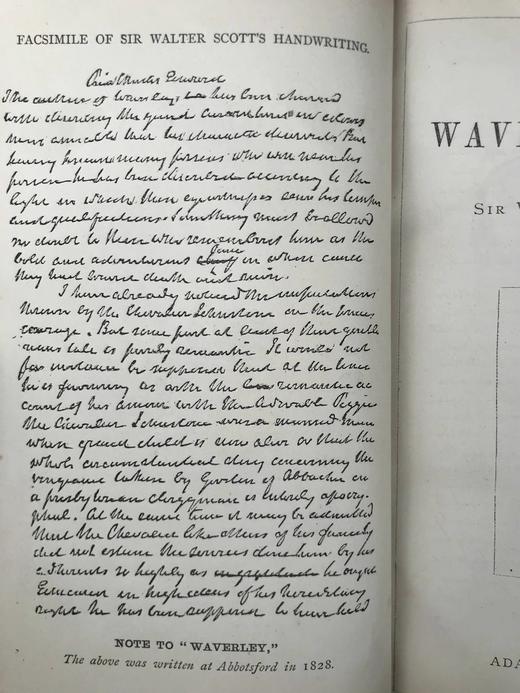 FACSIMILE OF SIR WALTER SCOTT'S HANDWRITING.
Prince Charles Edward
The author of Waverley has been charged
with describing the young in colours
more amiable that his character deserved. But
having known many persons who were near his
person he has been described according to the
light in which these eyewitnesses saw his temper
and qualifications. Something must be allowed
no doubt to those who remembered him as the
bold and adventurous Prince in whose cause
they had sought death and ruin.
I have already noticed the imputations
thrown by the Chevalier Johnstone on the Princes
courage. But some part at least of that gentle
mans tale is purely romantic. It would not
for instance be supposed that at the time
he is favouring us with the romantic ac
count of his amour with the adorable Peggie
the Chevalier Johnstone was a married man
whose grand child is now alive or that the
whole circumstantial story concerning the
vengeance taken by Gordon of Abbachie on
a presbyterian clergyman is entirely apocry-
phal. At the same time it may be admitted
that the Chevalier like others of his family
did not esteem the services done him by his
adherents so highly as he ought
Educated in high ideas of his hereditary
right he has been supposed to have held
NOTE TO "WAVERLEY,"
The above was written at Abbotsford in 1828.
WAVE
SIR W
ADA